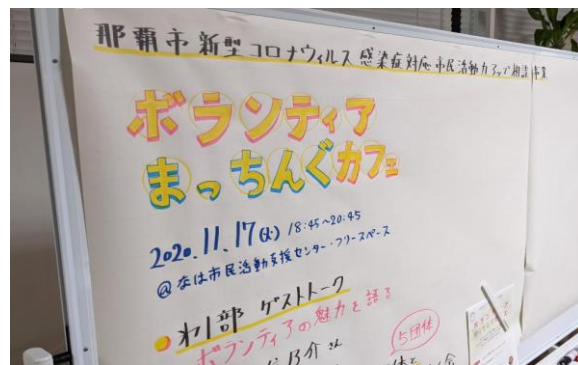 那覇市新型コロナウィルス感染症対応市民活動力アップ相談事業
ボランティア
まっちんぐカフェ
2020.11.17(火) 18:45~20:45
@なは市民活動支援センター・フリースペース
・カ1部 ゲストトーク
ボランティアの魅力を語る
5団体